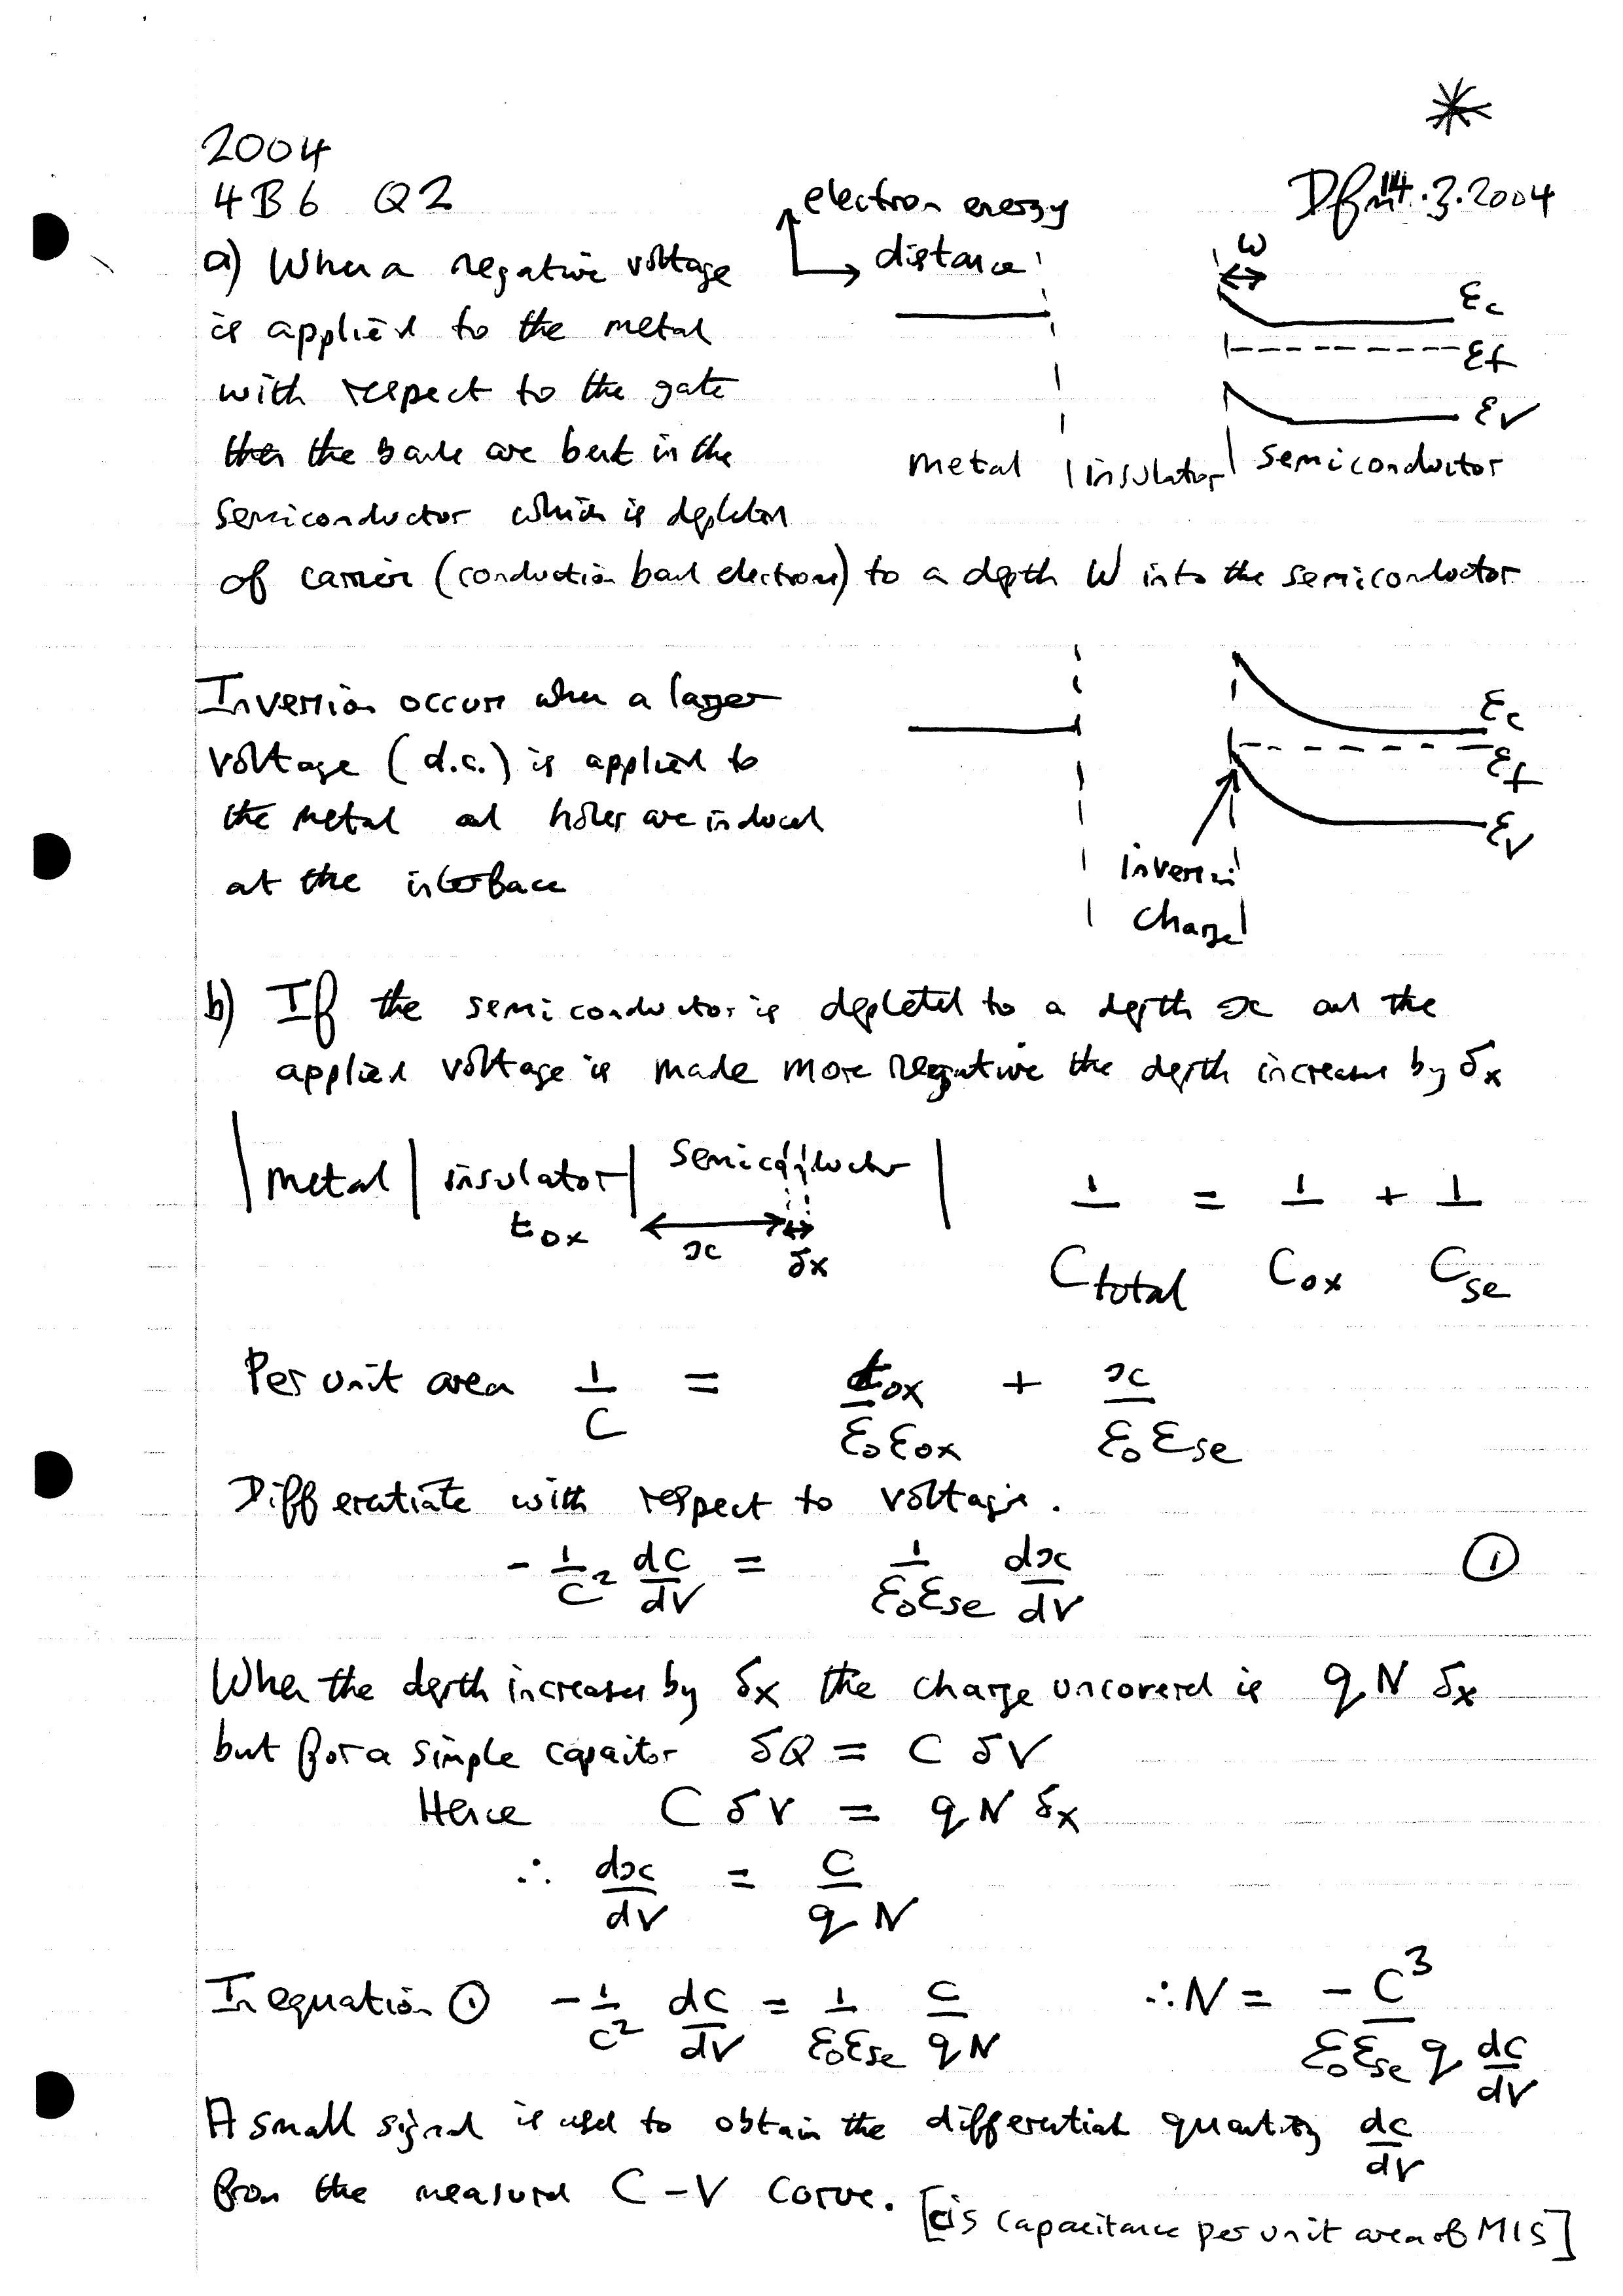 2004
4B6 Q2
14.3.2004
electron energy
distance
W
Ec
Ef
Ev
metal insulator semiconductor
a) When a negative voltage
is applied to the metal
with respect to the gate
then the bands are bent in the
semiconductor which is depleted
of carriers (conduction band electrons) to a depth W into the semiconductor
Inversion occurs when a larger
voltage (d.c.) is applied to
the metal and holes are induced
at the interface
Ec
Ef
Ev
inversion
charge
b) If the semiconductor is depleted to a depth x and the
applied voltage is made more negative the depth increases by δx
| metal | insulator | semiconductor |
tox x δx
1/Ctotal = 1/Cox + 1/Cse
Per unit area 1/C = tox/ε0εox + x/ε0εse
Differentiate with respect to voltage.
-1/C² dC/dV = 1/ε0εse dx/dV ①
When the depth increases by δx the charge uncovered is qN δx
but for a simple capacitor δQ = C δV
Hence C δV = qN δx
∴ dx/dV = C/qN
In equation ① -1/C² dC/dV = 1/ε0εse C/qN ∴ N = -C³/ε0εse q dC/dV
A small signal is used to obtain the differential quantity dC/dV
from the measured C-V curve. [C is capacitance per unit area of MIS]